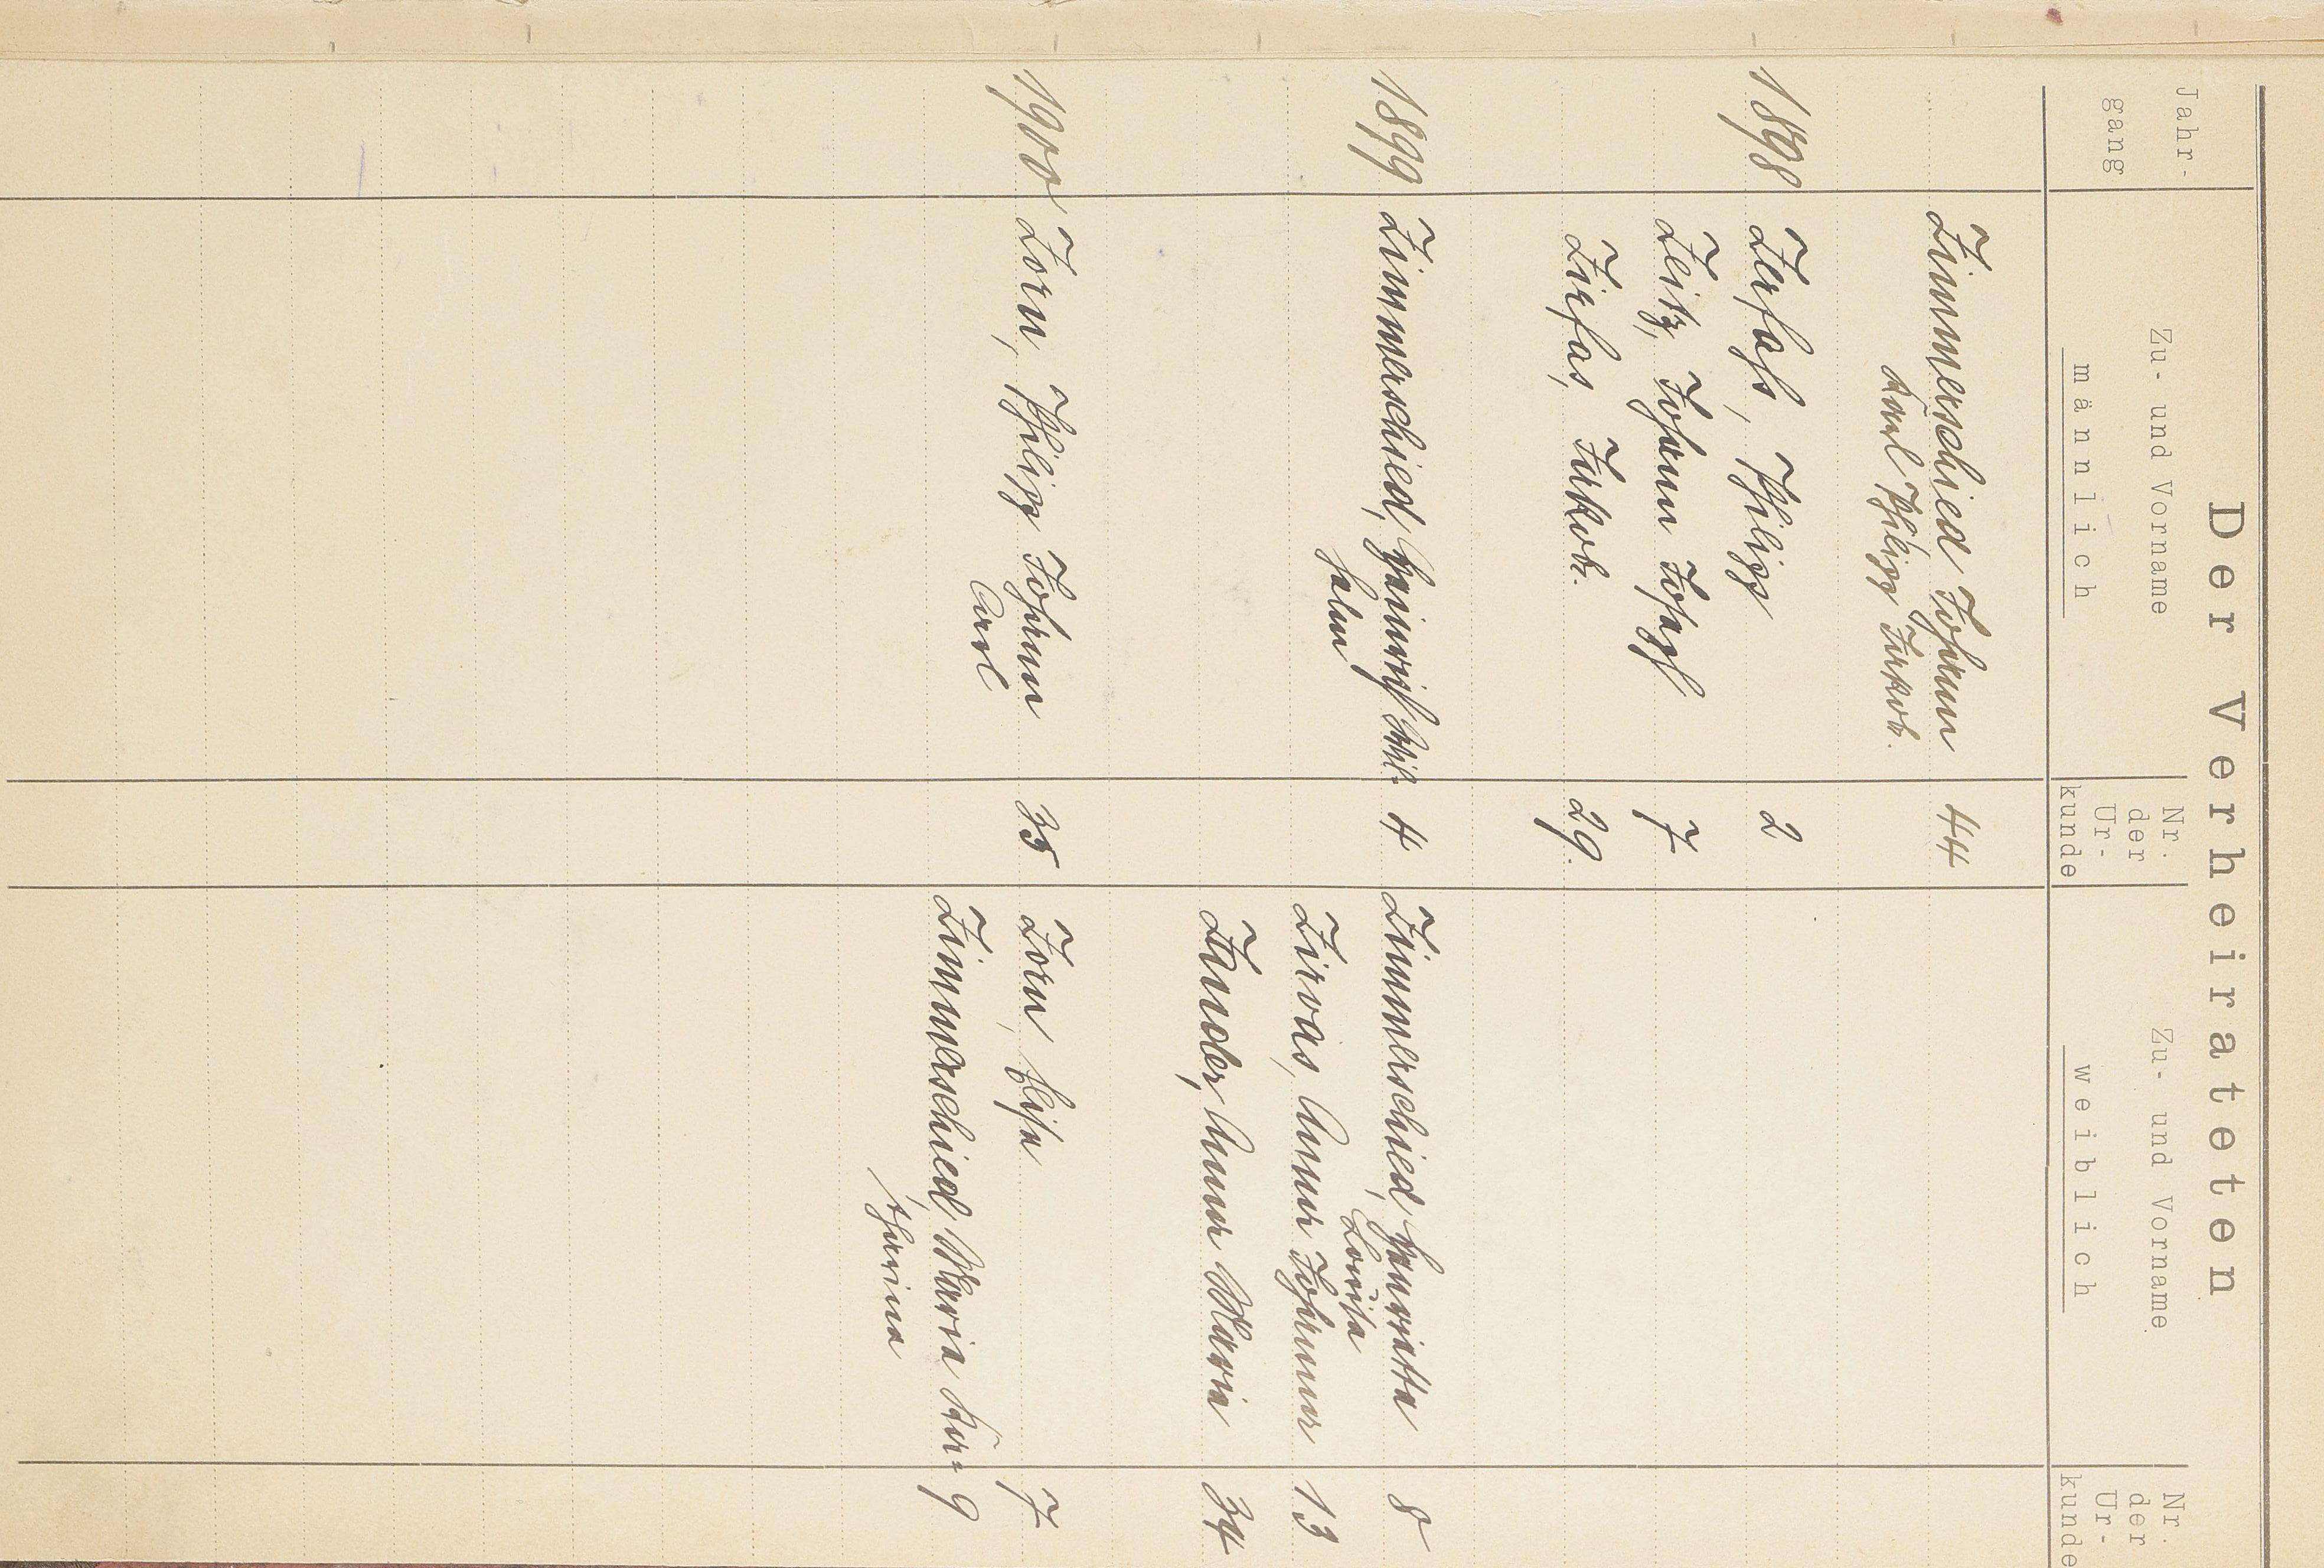 Der Verheirateten
Jahr-
gang
Zu- und Vorname
männlich
Nr.
der
Ur-
kunde
Zu- und Vorname
weiblich
Nr.
der
Ur-
kunde
Zimmerschied Johann 44
Karl Philipp Jakob.
1898 Zerfass, Philipp 2
Zeitz, Johann Joseph 7
Zirfas, Jakob. 29.
1899 Zimmerschied, Heinrich Wil- 4 Zimmerschied, Henriette 8
helm Louise
Zirvas, Anna Johanna 13
Zander, Anna Maria 34
1900 Zorn, Philipp Johann 35 Zorn, Elise 7
Carl
Zimmerschied, Maria Ka- 9
tharina